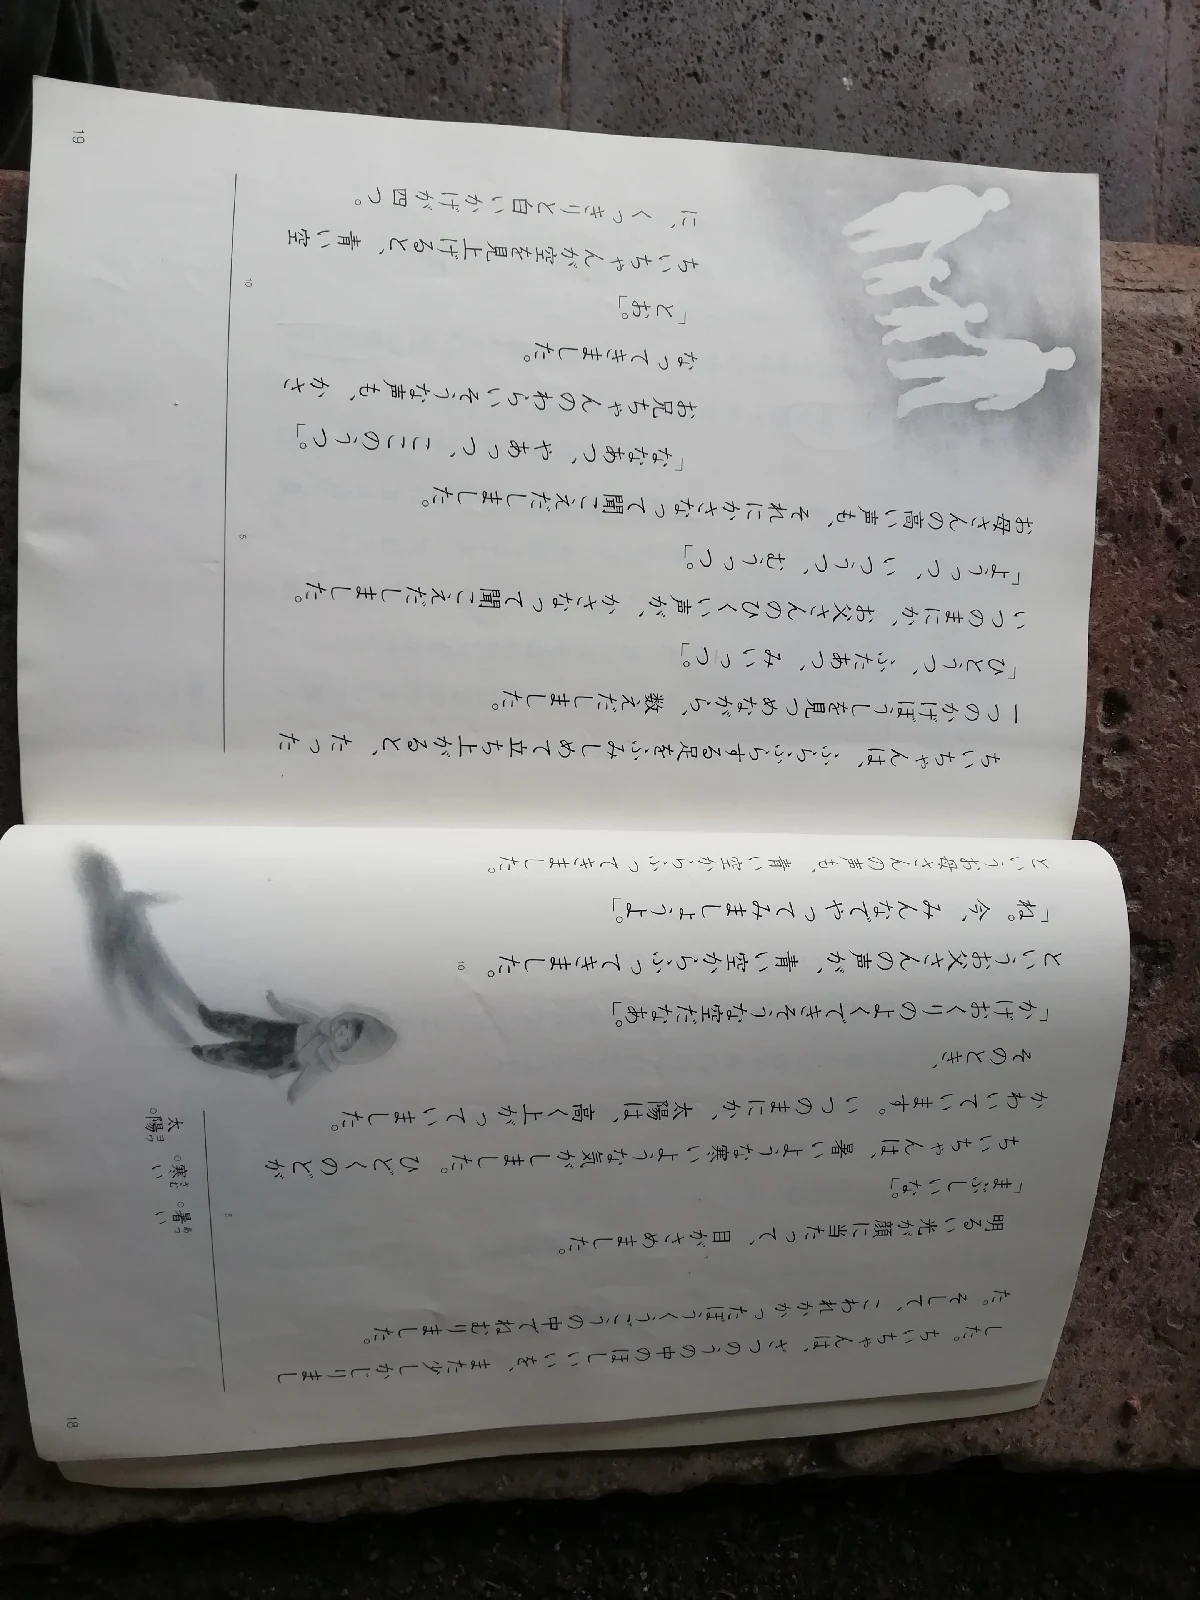 した。ちいちゃんは、ざつのうの中のほしいいを、また少しかじりまし
た。そして、こわれかかったぼうくうごうの中でねむりました。
明るい光が顔に当たって、目がさめました。
「まぶしいな。」
ちいちゃんは、暑いような寒いような気がしました。ひどくのどが
かわいています。いつのまにか、太陽は、高く上がっていました。
そのとき、
「かげおくりのよくできそうな空だなあ。」
というお父さんの声が、青い空からふってきました。
「ね。今、みんなでやってみましょうよ。」
というお母さんの声も、青い空からふってきました。
5
10
○暑い
あつ
○寒い
さむ
太○陽
ヨウ
18
ちいちゃんは、ふらふらする足をふみしめて立ち上がると、たった
一つのかげぼうしを見つめながら、数えだしました。
「ひとうつ、ふたあつ、みいっつ。」
いつのまにか、お父さんのひくい声が、かさなって聞こえだしました。
「ようっつ、いつうつ、むうっつ。」
お母さんの高い声も、それにかさなって聞こえだしました。
「ななあつ、やあっつ、ここのうつ。」
お兄ちゃんのわらいそうな声も、かさ
なってきました。
「とお。」
ちいちゃんが空を見上げると、青い空
に、くっきりと白いかげが四つ。
5
10
19